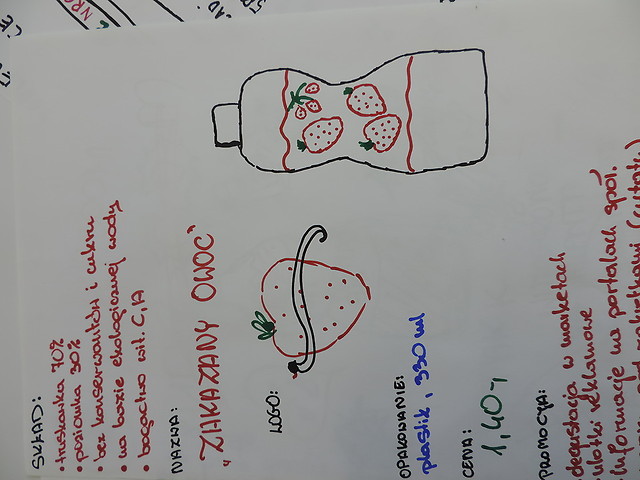 SKŁAD:
• truskawka 70%
• poziomka 30%
• bez konserwantów i cukru
• na bazie ekologicznej wody
• bogactwo wit. C, A
NAZWA:
"ZAKAZANY OWOC"
LOGO:
OPAKOWANIE:
plastik, 330 ml
CENA:
1,40,-
PROMOCJA:
• degustacja w marketach
• ulotki reklamowe
• informacje na portalach społ.